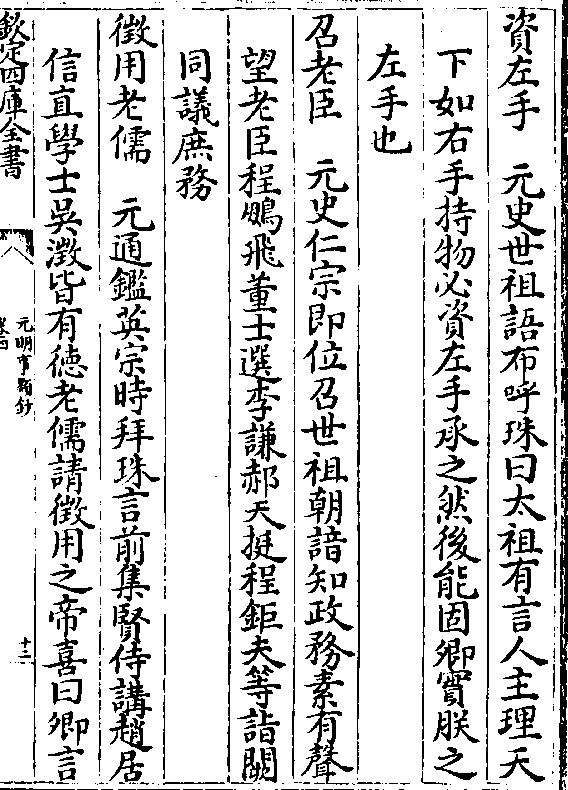 資左手　元史世祖語布呼珠曰太祖有言人主理天
下如右手持物必資左手承之然後能固卿實朕之
左手也
召老臣　元史仁宗即位召世祖朝諳知政務素有聲
望老臣程鵬飛董士選李謙郝天挺程鉅夫等詣闕
同議庶務
徵用老儒　元通鑑英宗時拜珠言前集賢侍講趙居
信直學士吳澂皆有德老儒請徵用之帝喜曰卿言
欽定四庫全書
元明事類鈔
十二